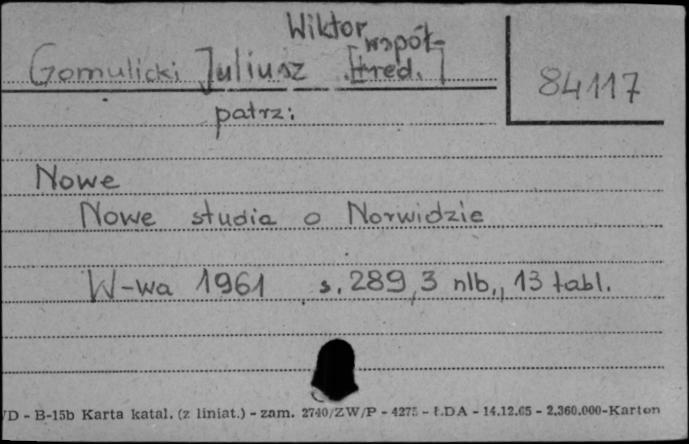 Wiktor
współ-
Gomulicki Juliusz [red.]
84117
patrz:
Nowe
Nowe studia o Norwidzie
W-wa 1961 s. 289, 3 nlb., 13 tabl.
/D - B-15b Karta katal. (z liniat.) - zam. 2740/ZW/P - 4275 - ŁDA - 14.12.65 - 2.360.000-Karton